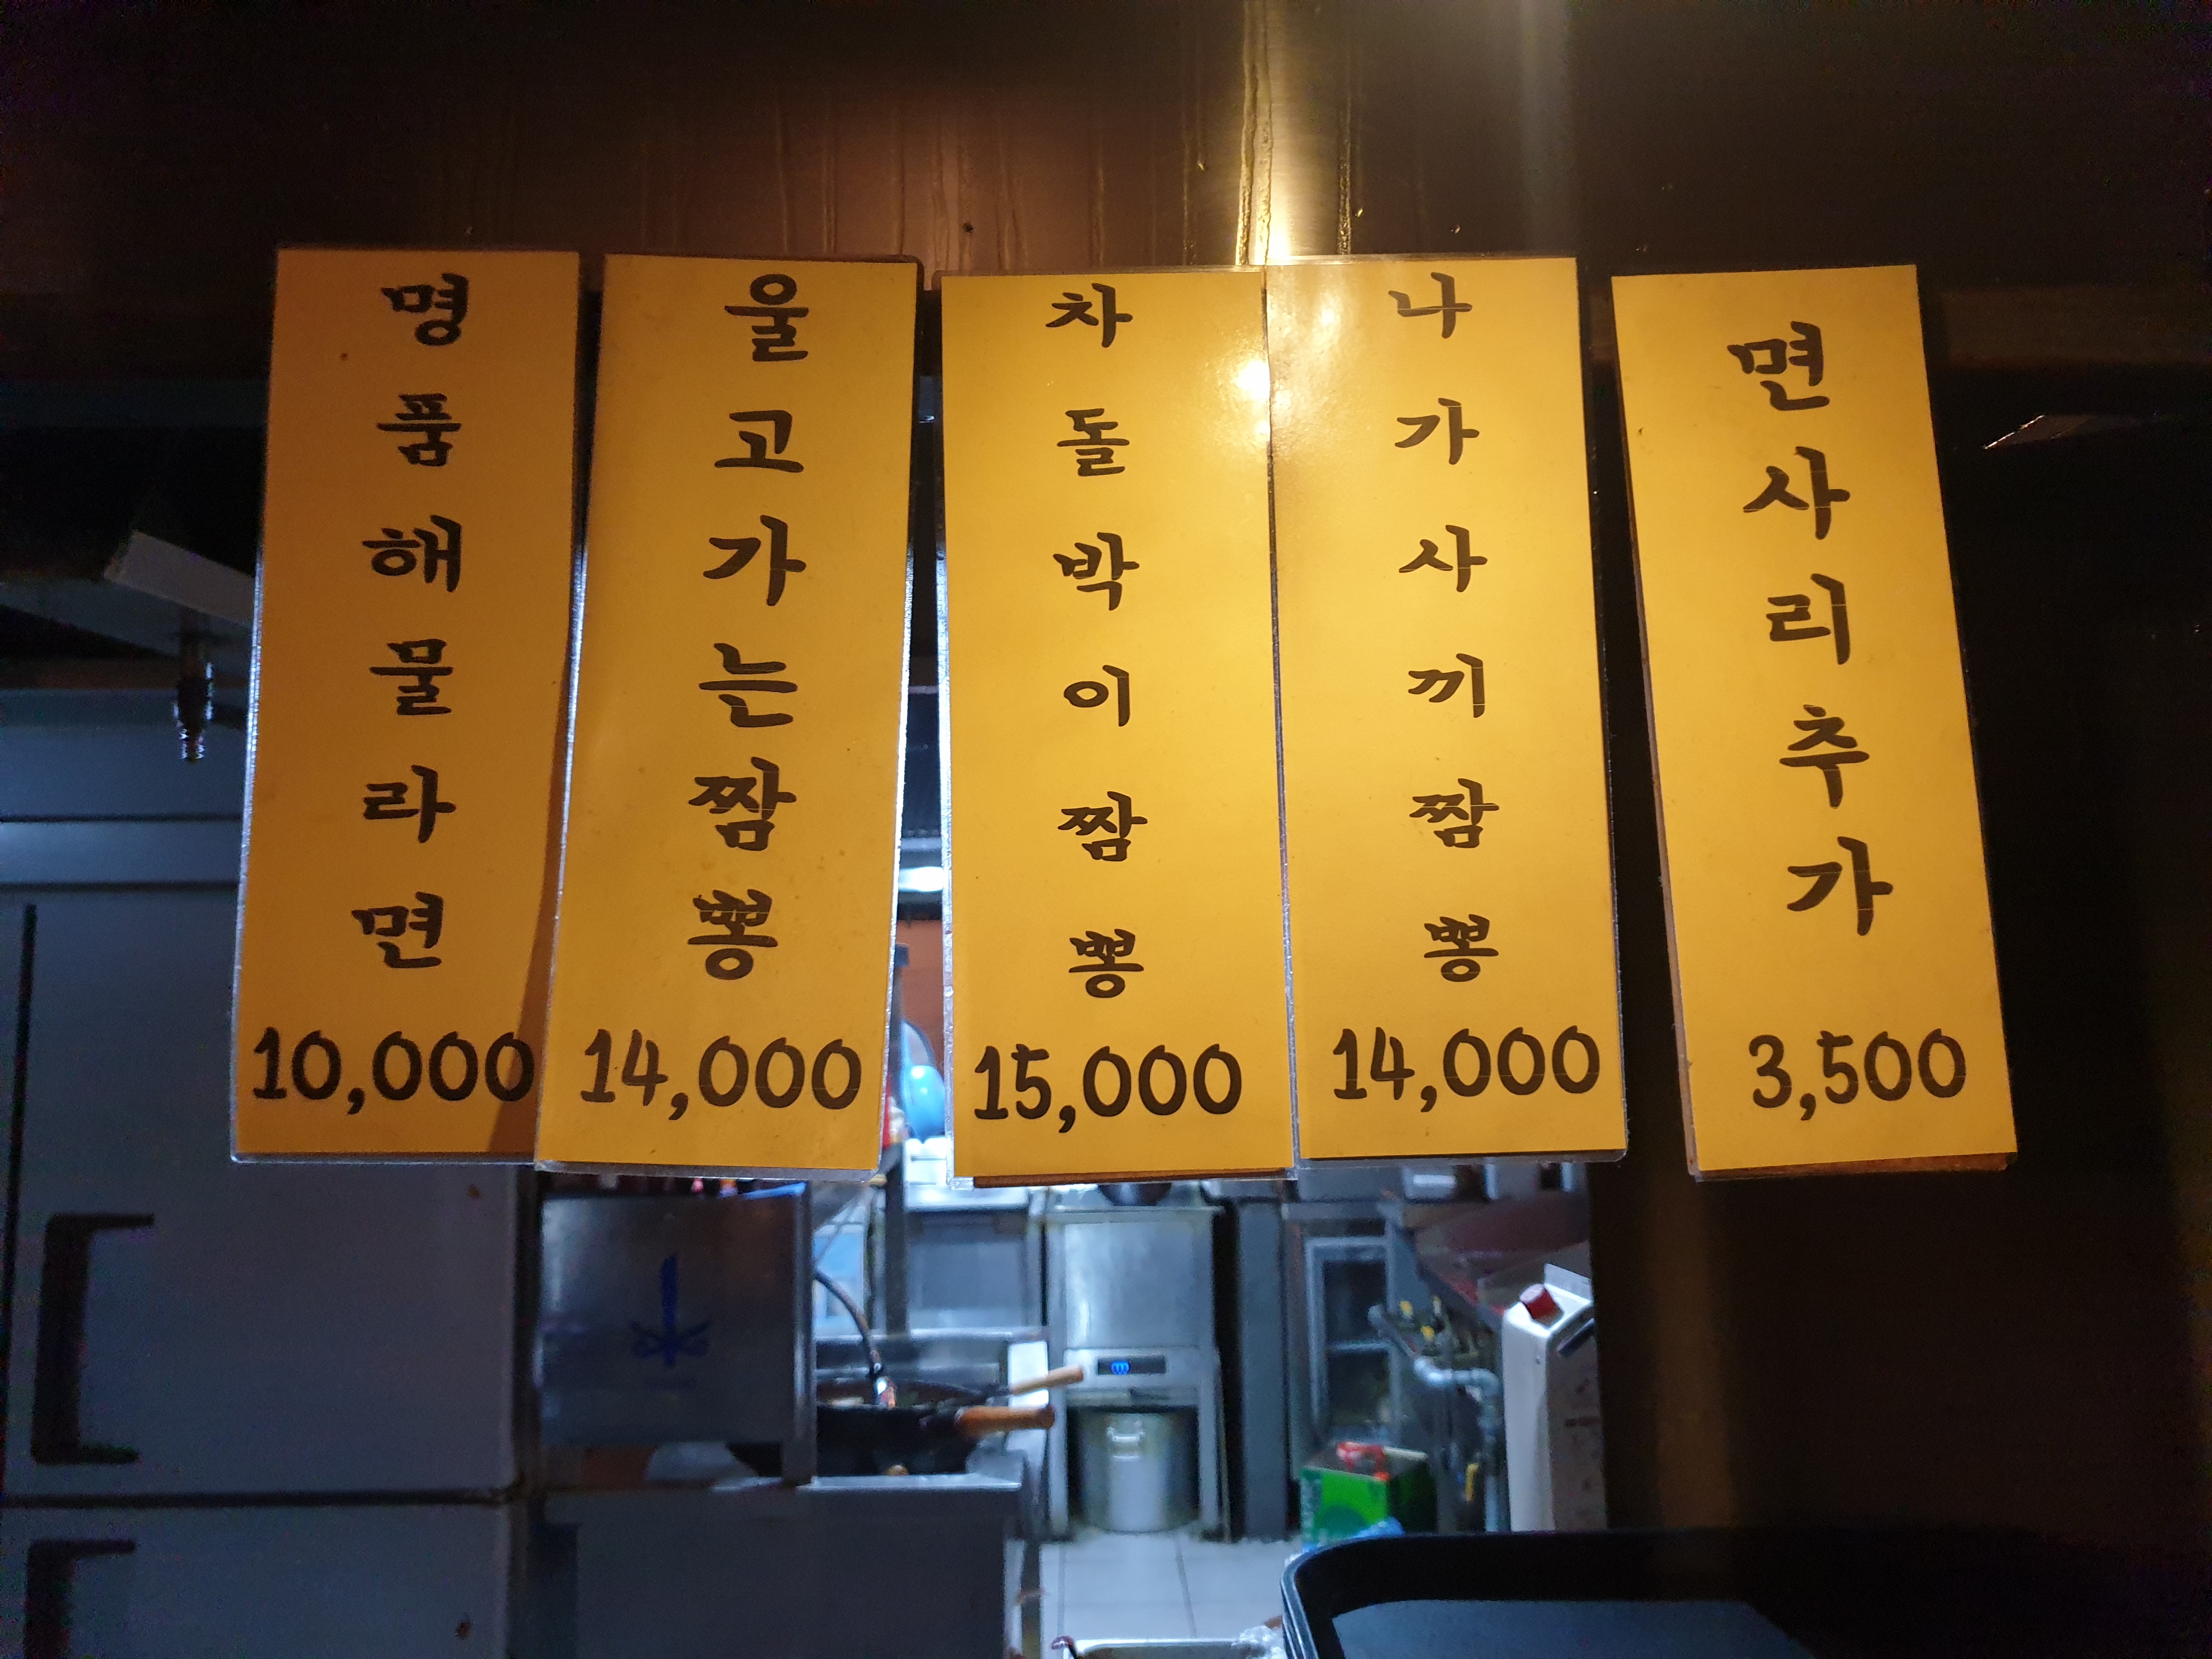 명품해물라면
10,000
울고가는짬뽕
14,000
차돌박이짬뽕
15,000
나가사끼짬뽕
14,000
면사리추가
3,500